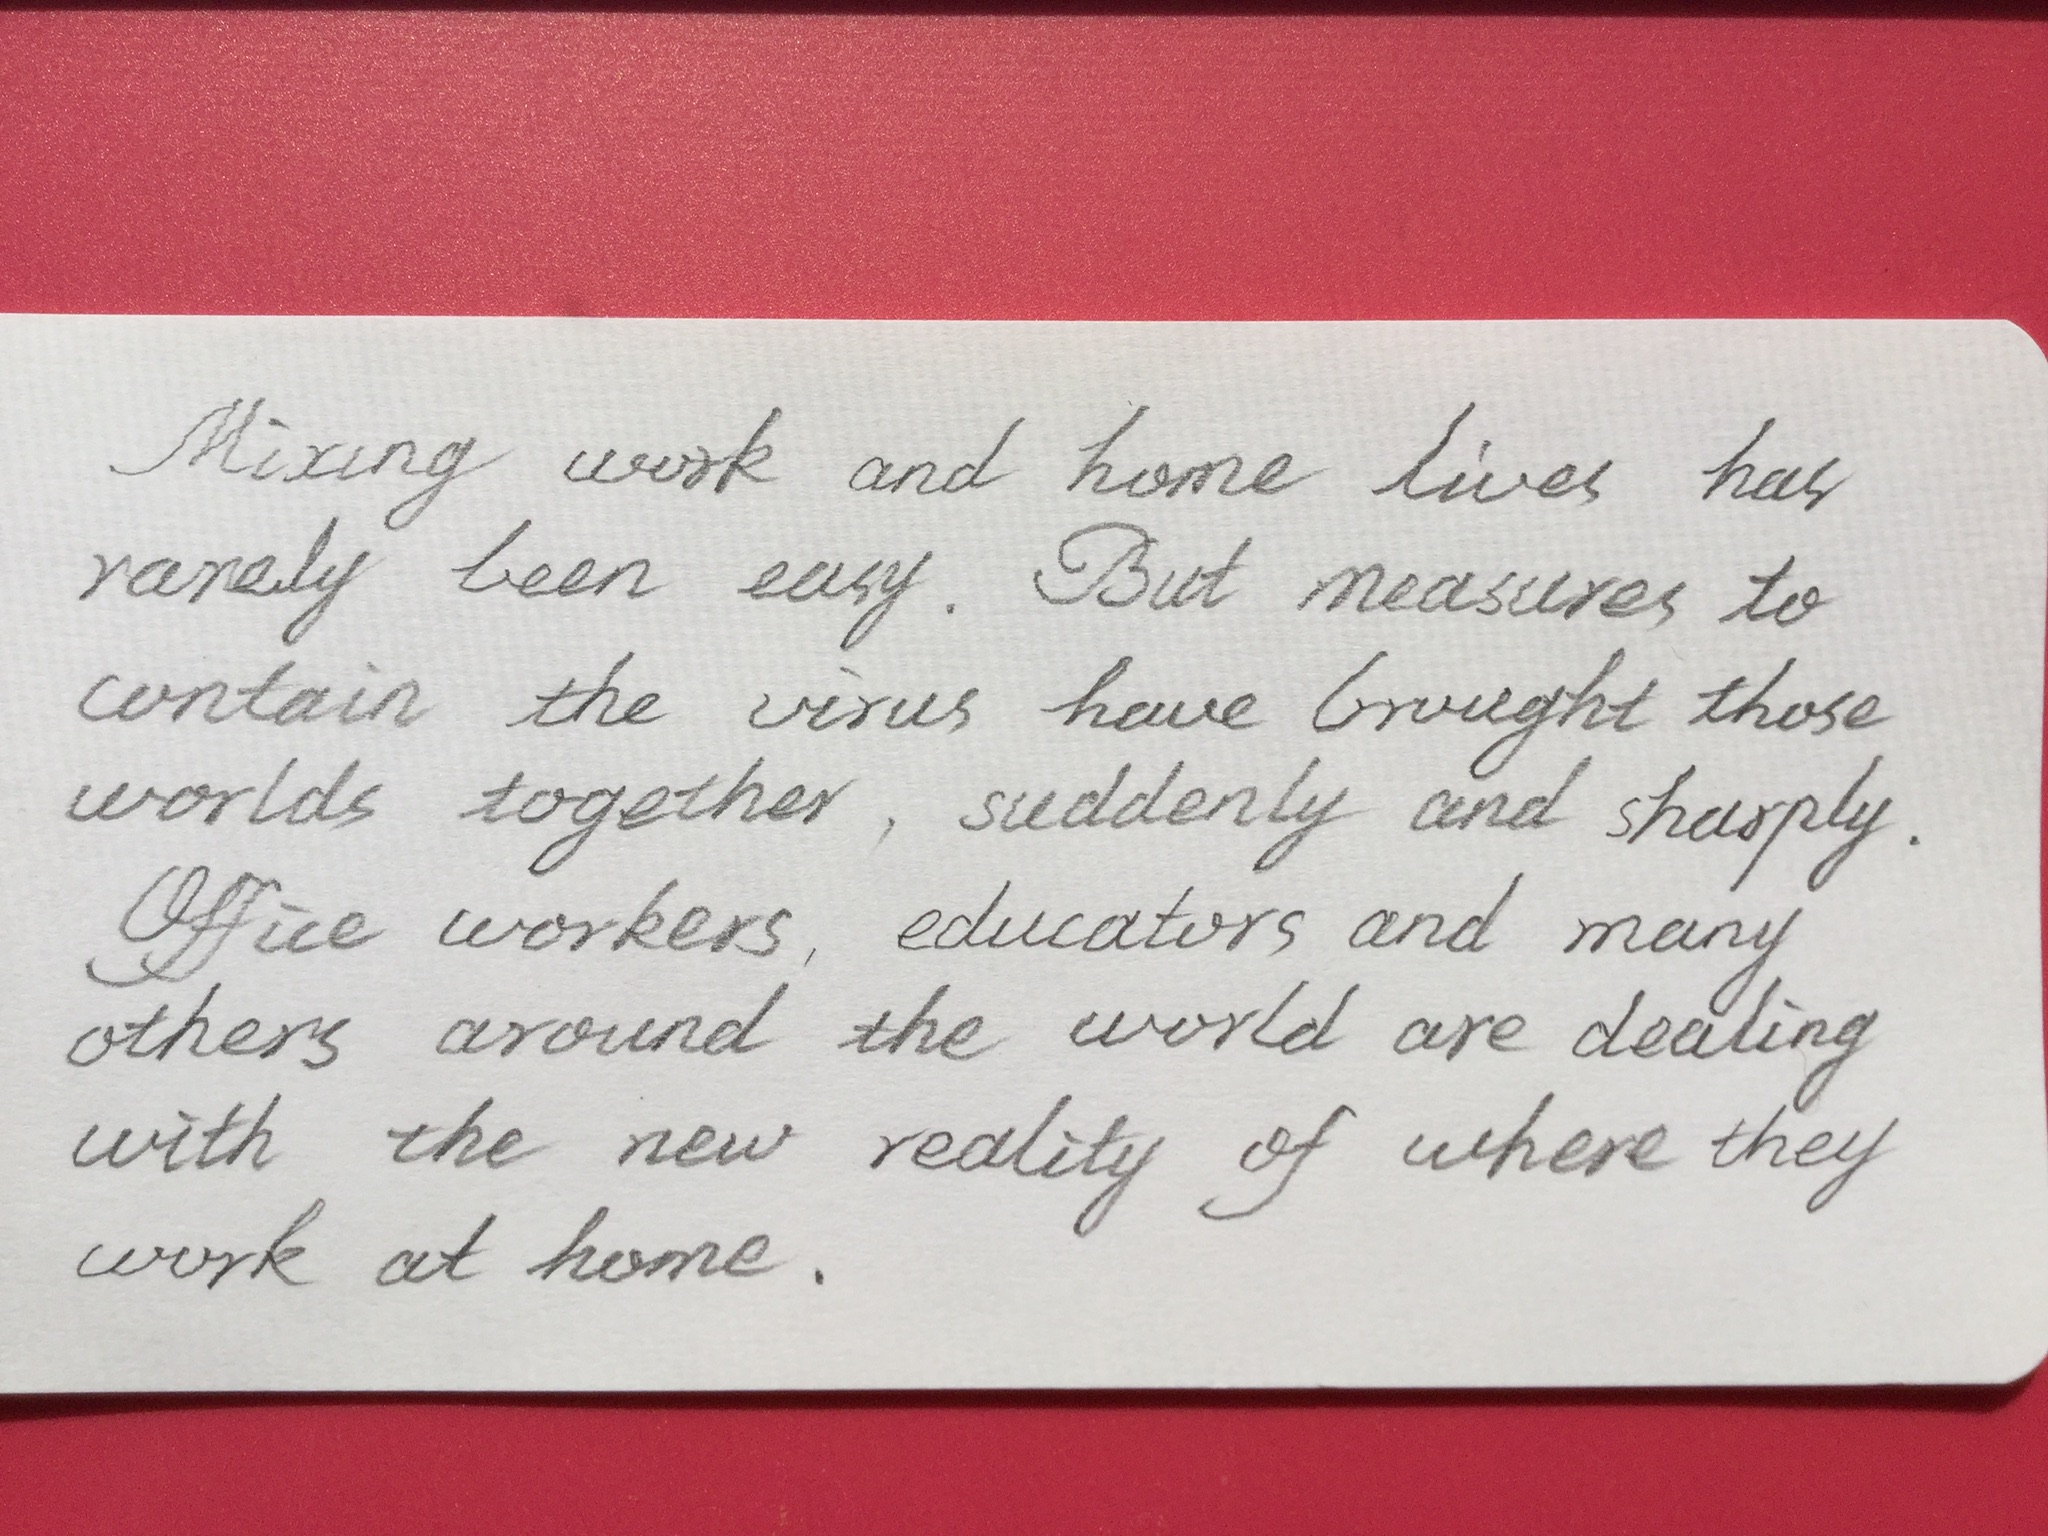 Mixing work and home lives has
rarely been easy. But measures to
contain the virus have brought those
worlds together, suddenly and sharply.
Office workers, educators and many
others around the world are dealing
with the new reality of where they
work at home.